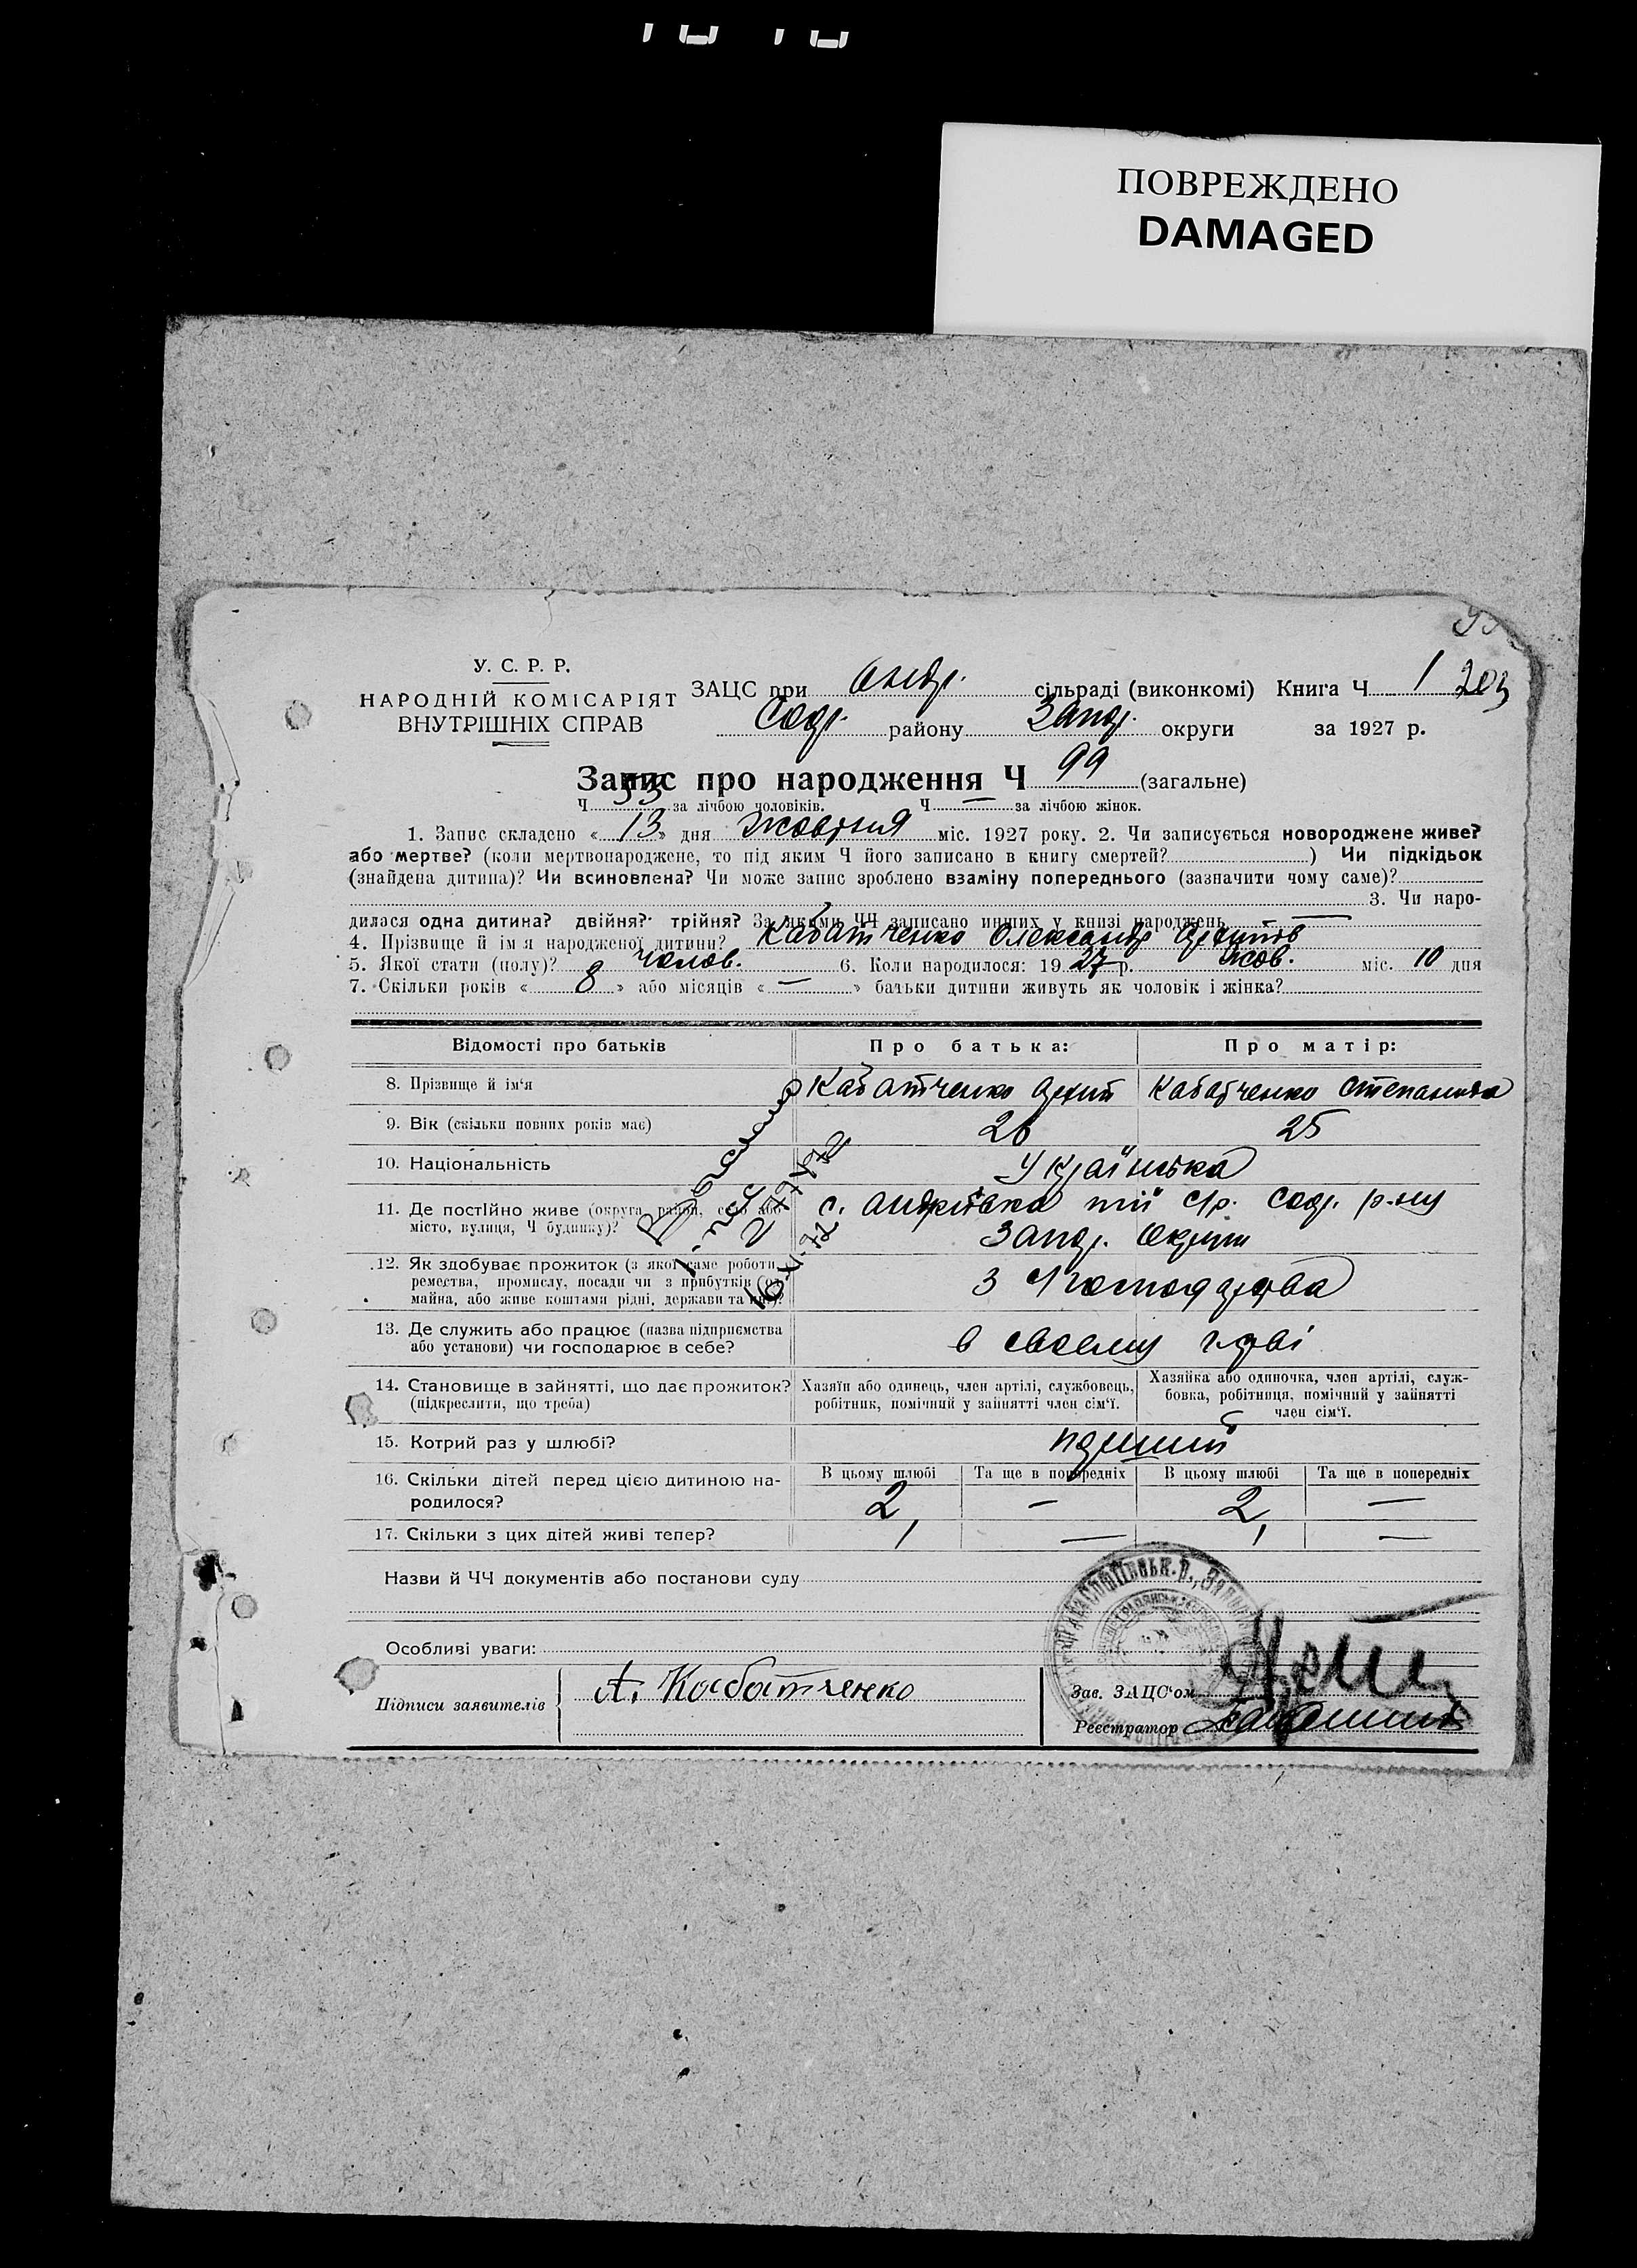 ПОВРЕЖДЕНО
DAMAGED
У. С. Р. Р.
НАРОДНІЙ КОМІСАРІЯТ
ВНУТРІШНІХ СПРАВ
ЗАЦС при Андр. сільраді (виконкомі) Книга Ч 1 203
Соф. району Запор. округи за 1927 р.
Запис про народження Ч 99 (загальне)
Ч 53 за лічбою чоловіків. Ч — за лічбою жінок.
1. Запис складено « 13 » дня Жовтня міс. 1927 року. 2. Чи записується новороджене живе?
або мертве? (коли мертвонароджене, то під яким Ч його записано в книгу смертей? ) Чи підкідьок
(знайдена дитина)? Чи всиновлена? Чи може запис зроблено взаміну попереднього (зазначити чому саме)?
3. Чи наро-
дилася одна дитина? двійня? трійня? За якими ЧЧ записано инших у книзі народжень —
4. Прізвище й ім я народженої дитини? Кабатченко Олександр
5. Якої стати (полу)? чолов. 6. Коли народилося: 19 27 р. жов. міс. 10 дня
7. Скільки років « 8 » або місяців « — » батьки дитини живуть як чоловік і жінка?
Відомості про батьків
Про батька:
Про матір:
8. Прізвище й ім'я
Кабатченко
Кабатченко Степанида
9. Вік (скільки повних років має)
26
25
10. Національність
Українська
11. Де постійно живе (округа, район, село або
місто, вулиця, Ч будинку)?
с. Андріївка тії с/р. Соф. р-ну
Запор. Округи
12. Як здобуває прожиток (з якої саме роботи,
ремества, промислу, посади чи з прибутків (од
майна, або живе коштами рідні, держави та ин)?
З С/господарства
13. Де служить або працює (назва підприємства
або установи) чи господарює в себе?
в своему г-рві
14. Становище в зайнятті, що дає прожиток?
(підкреслити, що треба)
Хазяїн або одинець, член артілі, службовець,
робітник, помічний у зайнятті член сім'ї.
Хазяйка або одиночка, член артілі, служ-
бовка, робітниця, помічний у зайнятті
член сім'ї.
15. Котрий раз у шлюбі?
перший
16. Скільки дітей перед цією дитиною на-
родилося?
В цьому шлюбі
Та ще в попередніх
В цьому шлюбі
Та ще в попередніх
2
—
2
—
17. Скільки з цих дітей живі тепер?
1
—
1
—
Назви й ЧЧ документів або постанови суду
Особливі уваги:
Підписи заявителів
А. Кабатченко
Зав. ЗАЦС'ом
Реєстратор